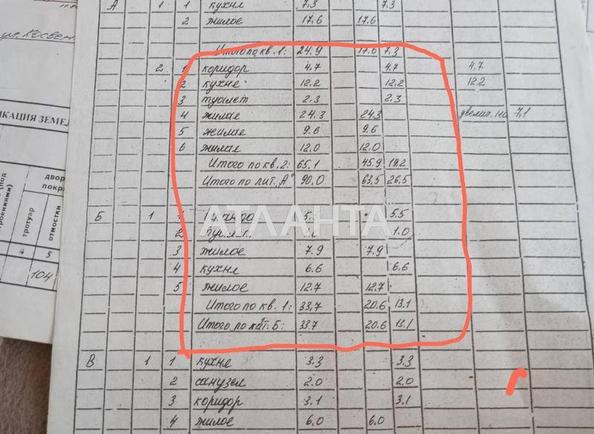 А 1 1 кухня 7.3 7.3
2 жилое 17.6 17.6
Итого по кв. 1: 24.9 17.6 7.3
2 1 коридор 4.7 4.7 4.7
2 кухне 12.2 12.2 12.2
3 туалет 2.3 2.3
4 жилое 24.3 24.3 увелич. на 7,1
5 жилое 9.6 9.6
6 жилое 12.0 12.0
Итого по кв. 2: 65.1 45.9 19.2
Итого по лит. "А" 90.0 63.5 26.5
АТЛАНТА
Б 1 1 5.5
2 1.0
3 жилое 7.9 7.9
4 кухне 6.6 6.6
5 жилое 12.7 12.7
Итого по кв. 1: 33,7 20.6 13.1
Итого по лит. Б: 33.7 20.6 13.1
В 1 1 кухне 3.3 3.3
2 санузел 2.0 2.0
3 коридор 3.1 3.1
4 жилое 6.0 6.0
ИКАЦИЯ ЗЕМЕ
(под
строениями)
тротуар
отмостки
двор
покры
4 5
104